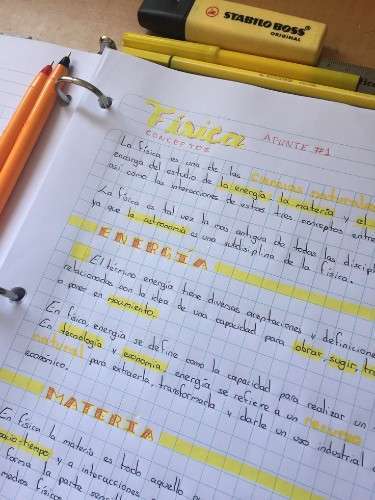 STABILO BOSS
ORIGINAL
Física
CONCEPTOS
APUNTE #1
La física es una de las ciencias naturales
encarga del estudio de la energía, la materia y el
así como las interacciones de estos tres conceptos entre
La física es tal vez la mas antigua de todas las
ya que la astronomía es una subdisiplina de la física.
ENERGIA
El término energía tiene diversas aceptaciones y
relacionadas con la idea de una capacidad para obrar, sugir,
o poner en movimiento.
En física, energía se define como la capacidad para realizar un
En tecnología y economía, energía se refiere a un recurso
natural para extraerla, transformarla y darle un uso industrial
económico.
MATERIA
En física la materia es todo aquello
espacio-tiempo y a interacciones
forma la parte
medios físicos